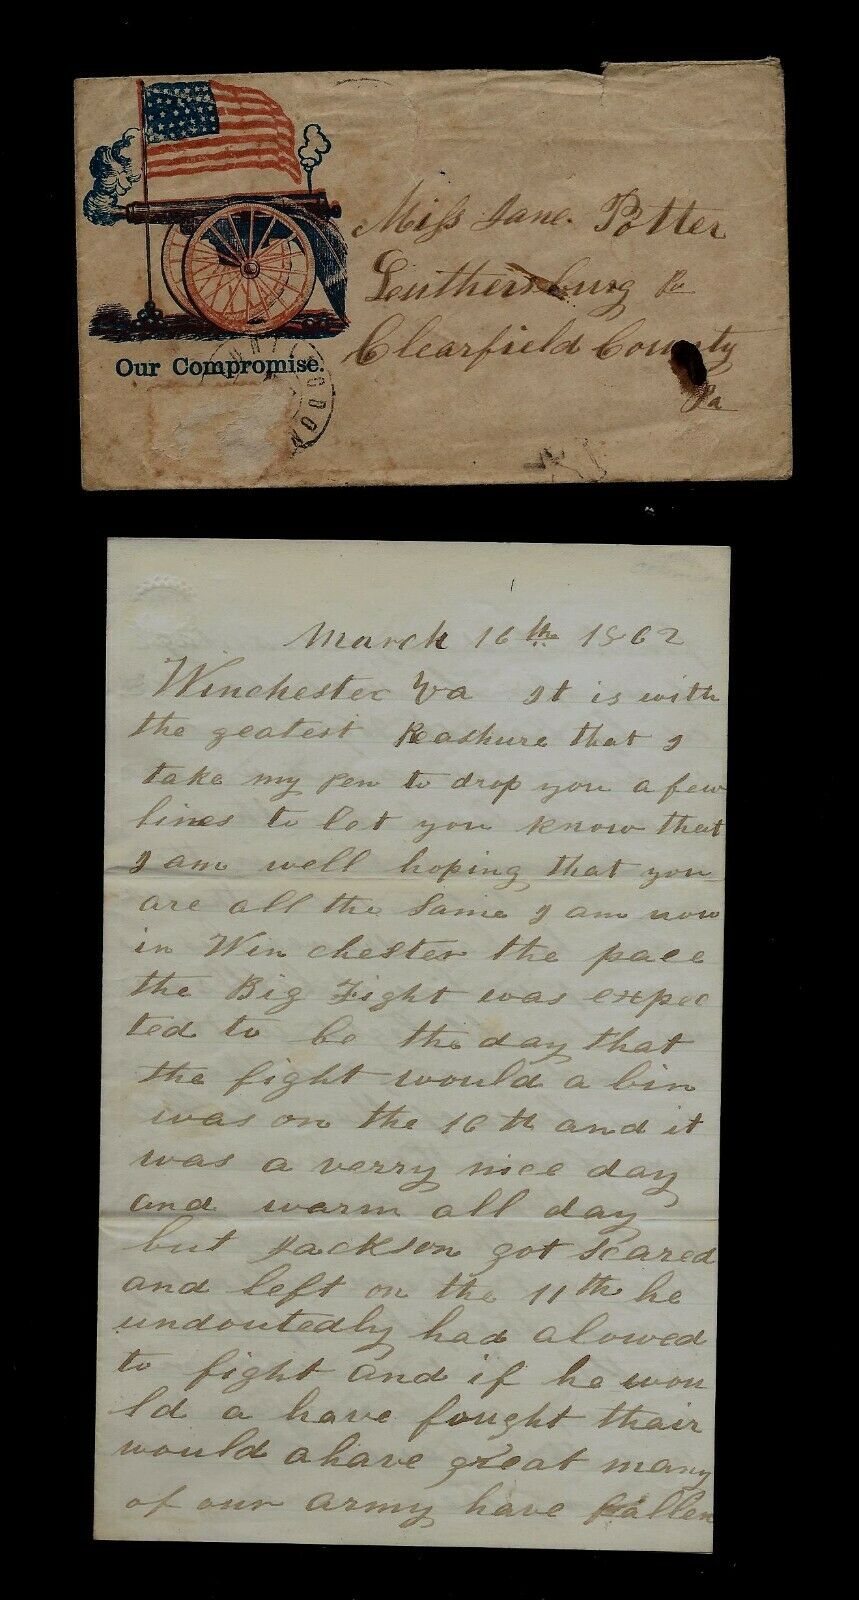 Our Compromise.
Miss Jane Potter
Luthersburg Pa
Clearfield County
Pa
March 16th 1862
Winchester Va It is with
the geatest Peashure that I
take my pen to drop you a few
lines to let you know that
I am well hoping that you
are all the same I am now
in Winchester the pace
the Big Fight was expec
ted to be the day that
the fight would a bin
was on the 16th and it
was a verry nice day
and warm all day
but Jackson got scared
and left on the 11th he
undoutedly had alowed
to fight and if he wou
ld a have fought thair
would ahave great many
of our army have fallen